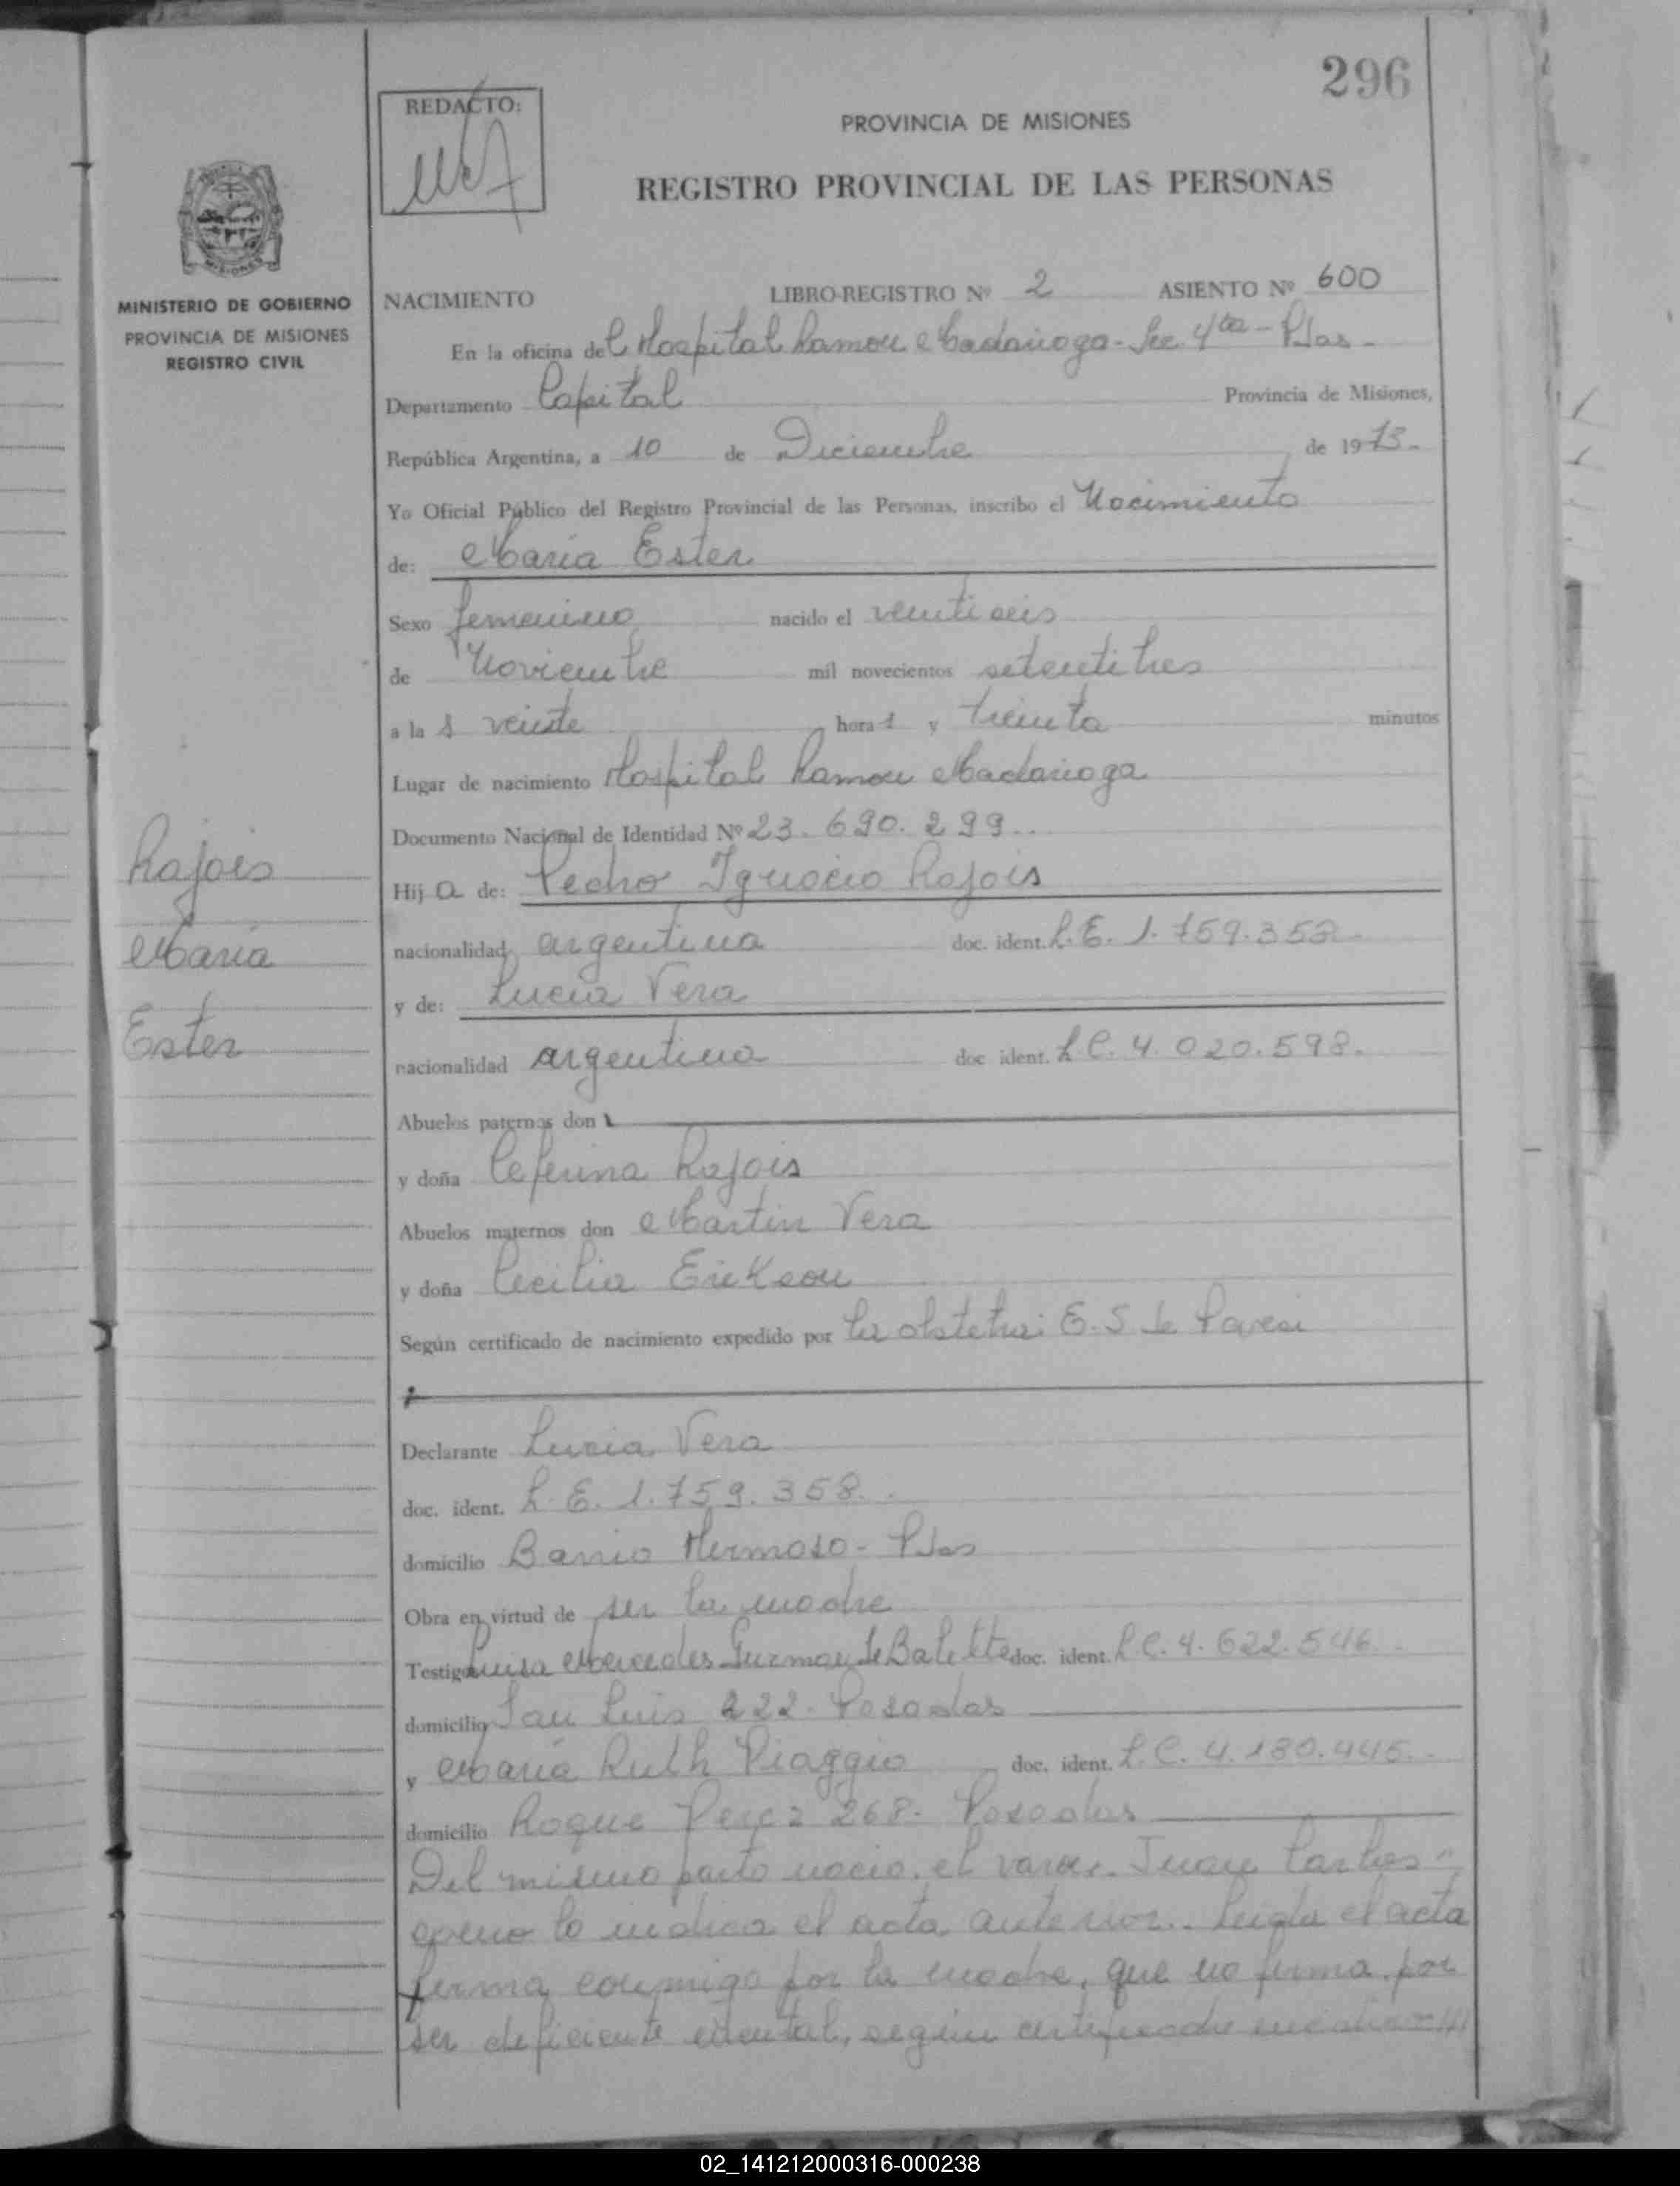 296
REDACTO:
PROVINCIA DE MISIONES
REGISTRO PROVINCIAL DE LAS PERSONAS
MISIONES
MINISTERIO DE GOBIERNO
PROVINCIA DE MISIONES
REGISTRO CIVIL
NACIMIENTO LIBRO-REGISTRO Nº 2 ASIENTO Nº 600
En la oficina del Hospital Ramon Madariaga - Sec. 4ta - Pdas -
Departamento Capital Provincia de Misiones,
República Argentina, a 10 de Diciembre de 1973.-
Yo Oficial Público del Registro Provincial de las Personas, inscribo el Nacimiento
de: María Ester
Sexo femenino nacido el veintiseis
de Noviembre mil novecientos setentitres
a las veinte horas y treinta minutos
Lugar de nacimiento Hospital Ramon Madariaga
Documento Nacional de Identidad Nº 23.690.299..
Hij a de: Pedro Ignacio Rajois
nacionalidad argentina doc. ident. L.E. 1.759.358.
y de: Lucia Vera
nacionalidad argentina doc ident. L.C. 4.020.598.
Abuelos paternos don
y doña Ceferina Rajois
Abuelos maternos don Martin Vera
y doña Cecilia Erickson
Según certificado de nacimiento expedido por la obstetri: E.S de Pavesi
Declarante Lucia Vera
doc. ident. L.E. 1.759.358..
domicilio Barrio Hermoso - Pdas
Obra en virtud de ser la madre
Testigo Luisa Mercedes Guzman de Baletto doc. ident. L.C. 4.622.546..
domicilio San Luis 222 - Posadas
y María Ruth Piaggio doc. ident. L.C. 4.180.445..
domicilio Roque Perez 268 - Posadas
Del mismo parto nacio el varon Juan Carlos"
como lo indica el acta anterior. Leida el acta
firma conmigo por la madre, que no firma por
ser deficiente mental, segun certificado medico
Rajois
María
Ester
02_141212000316-000238